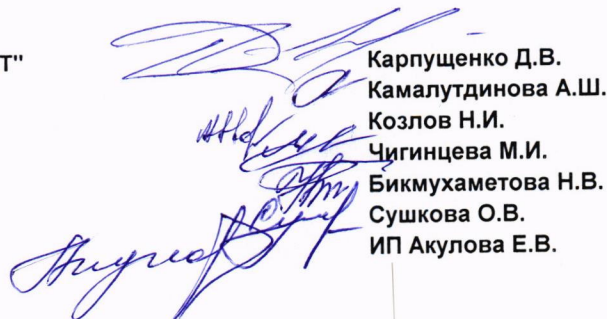 Т"
Карпущенко Д.В.
Камалутдинова А.Ш.
Козлов Н.И.
Чигинцева М.И.
Бикмухаметова Н.В.
Сушкова О.В.
ИП Акулова Е.В.